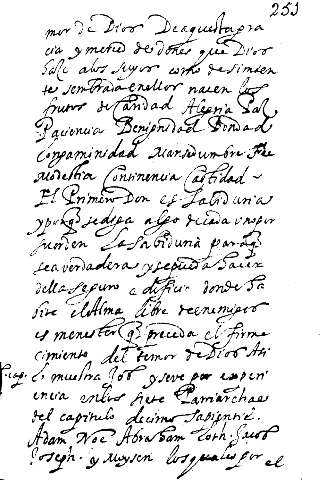 253
mor de Dios De aquesta gra
cia y metied de dones que Dios
haze a los suyos como de simien
te sembrada en ellos nacen los
frutos de Caridad Alegria Paz
Paciencia Benignidad Bondad
Longaminidad Mansedumbre Fee
Modestia Continencia Castidad ~
El Primero Don es Sabiduria
y porq̃ se diga algo de cada uno por
su orden La Sabiduria para q̃
sea verdadera y se pueda hacer
della seguro edificio donde ha
bite el Alma libre de enemigos
es menester q̃ preceda el firme
cimiento del temor de Dios Asi
cap.
lo muestra Job y se ve por experi
encia en los siete Patriarchas
del capitulo decimo Sapientiæ.
Adam Noe Abraham Loth Jacob
Joseph y Moysen los quales por el